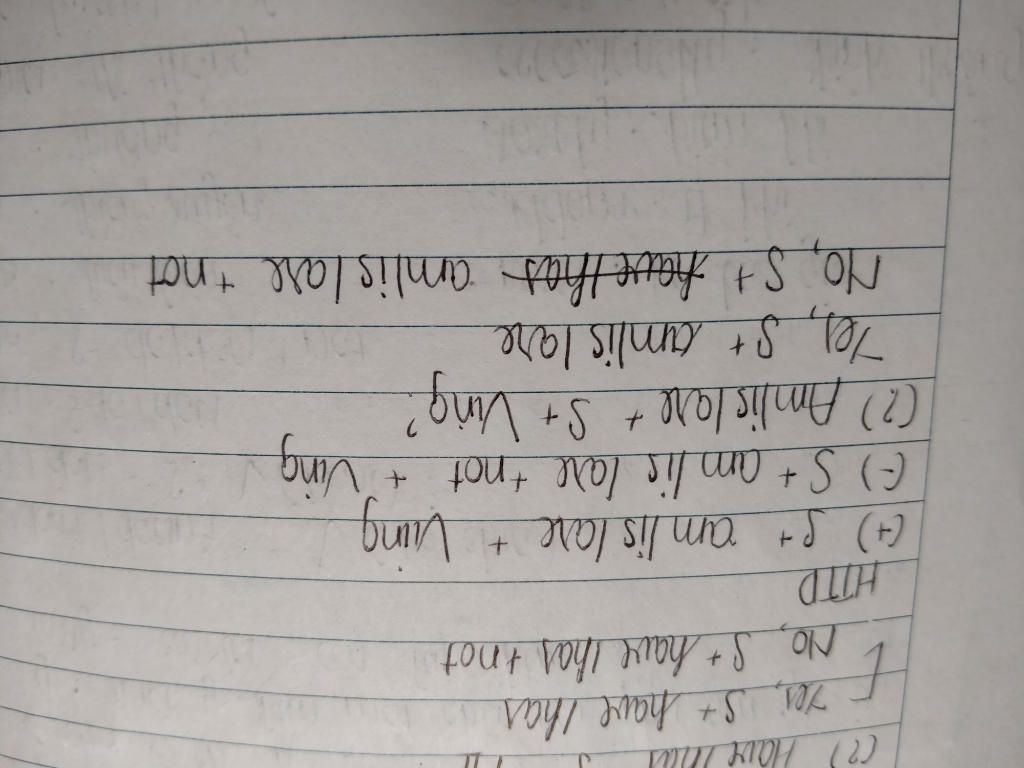 (?) Have/has S
Yes, S+ have/has
No, S+ have/has+not
HTTD
(+) S+ am/is/are + Ving
(-) S+ am/is/are +not + Ving
(?) Am/is/are + S+ Ving?
Yes, S+ am/is/are
No, S+ have/has am/is/are +not